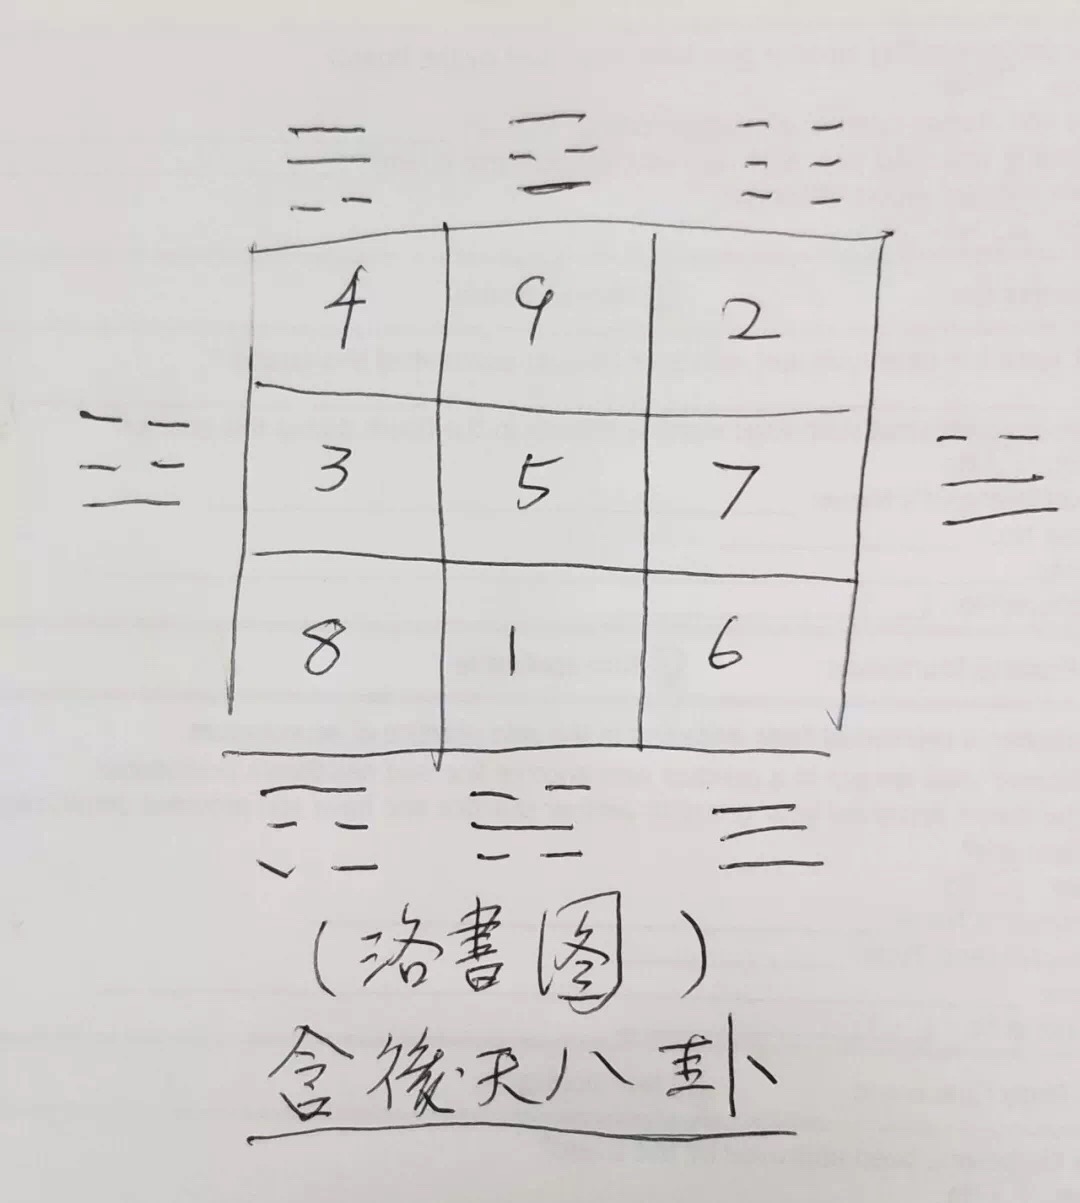 ☴ ☲ ☷
4 9 2
☳ 3 5 7 ☱
8 1 6
☶ ☵ ☰
(洛書图)
含後天八卦